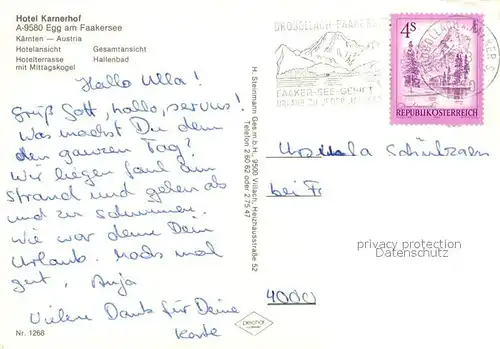 Hotel Karnerhof
A-9580 Egg am Faakersee
Kärnten – Austria
Hotelansicht Gesamtansicht
Hotelterrasse Hallenbad
mit Mittagskogel
Hallo Ulla!
Grüß Gott, hallo, servus!
Was machst Du denn
den ganzen Tag?
Wir liegen faul am
Strand und gehen ab
und zu schwimmen.
Wie war denn Dein
Urlaub. Machs mal
gut, Anja
Vielen Dank für Deine
Karte
Nr. 1268
H. Steinmann Ges.m.b.H., 9500 Villach, Heizhausstraße 52
Telefon 2 60 62 oder 2 75 47
DROBOLLACH-FAAKERSEE
FAAKER-SEE-GEBIET
URLAUB ZU JEDER
4S
REPUBLIK ÖSTERREICH
Ursula
bei Fr
4000
privacy protection
Datenschutz